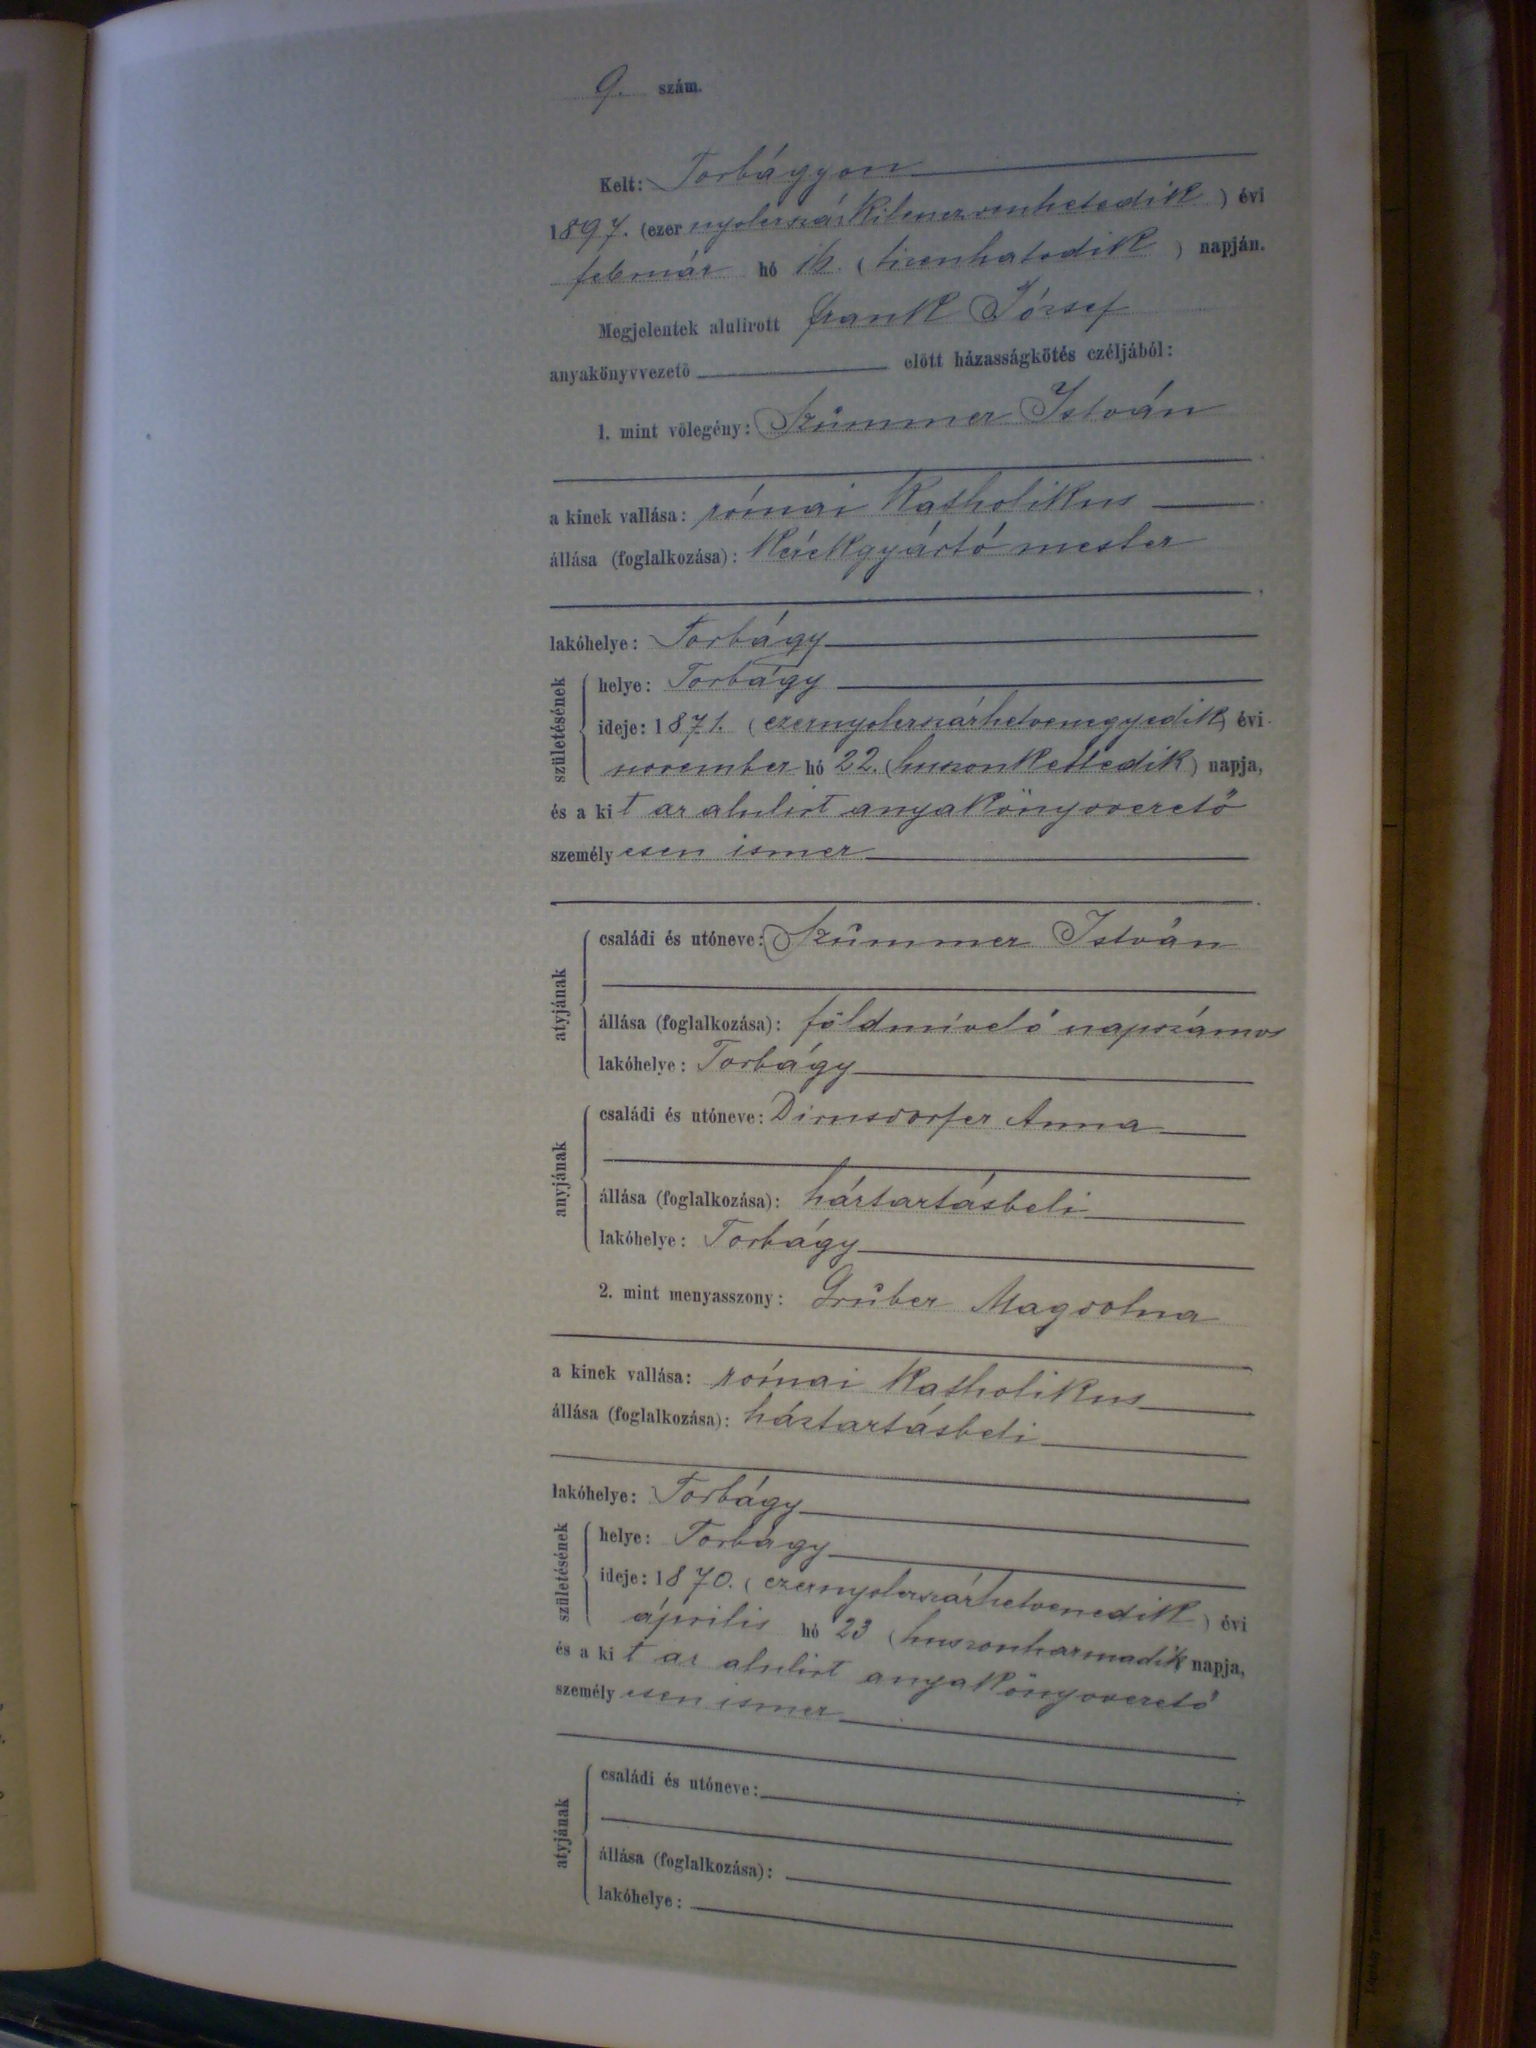 9. szám.
Kelt: Torbágyon
1897. (ezer nyolczszázkilenczvenhetedik) évi
február hó 16. (tizenhatodik) napján.
Megjelentek alulirott Frank József
anyakönyvvezető előtt házasságkötés czéljából:
1. mint vőlegény: Krümmer István
a kinek vallása: római katholikus
állása (foglalkozása): kerékgyártó mester
lakóhelye: Torbágy
születésének
helye: Torbágy
ideje: 1871. (ezernyolczszázhetvenegyedik) évi
november hó 22. (huszonkettedik) napja,
és a kit az alulirt anyakönyvvezető
személyesen ismer
atyjának
családi és utóneve: Krümmer István
állása (foglalkozása): földmívelő napszámos
lakóhelye: Torbágy
anyjának
családi és utóneve: Dirnsdorfer Anna
állása (foglalkozása): háztartásbeli
lakóhelye: Torbágy
2. mint menyasszony: Grúber Magdolna
a kinek vallása: római katholikus
állása (foglalkozása): háztartásbeli
lakóhelye: Torbágy
születésének
helye: Torbágy
ideje: 1870. (ezernyolczszázhetvenedik) évi
április hó 23 (huszonharmadik napja,
és a kit az alulirt anyakönyvvezető
személyesen ismer
atyjának
családi és utóneve:
állása (foglalkozása):
lakóhelye: